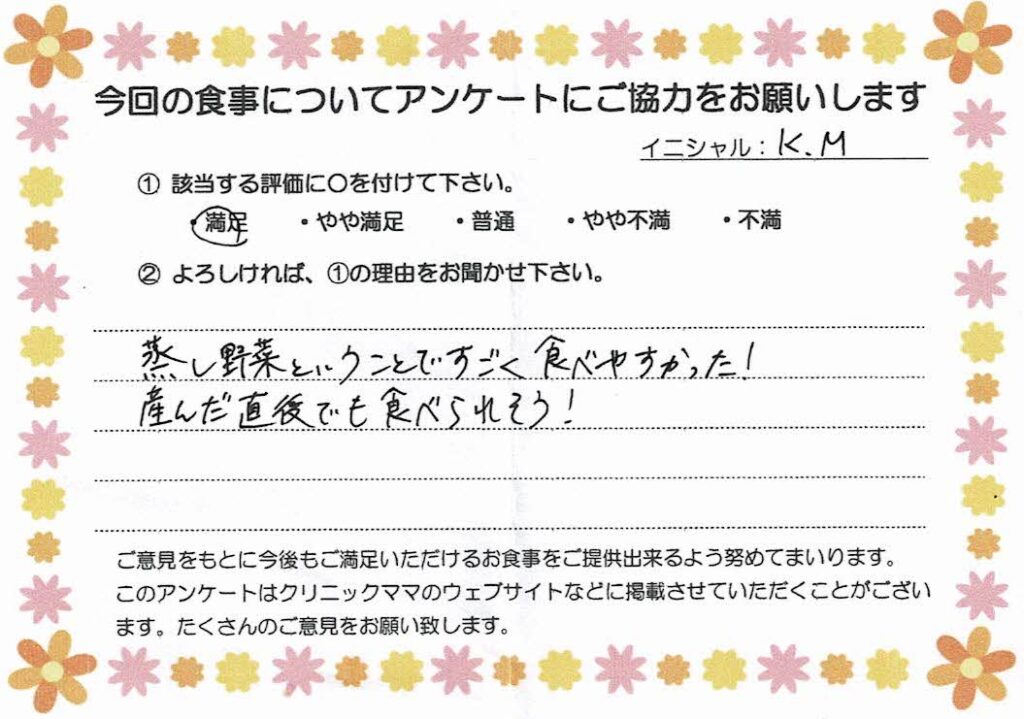 今回の食事についてアンケートにご協力をお願いします
イニシャル：K.M
① 該当する評価に〇を付けて下さい。
・満足 ・やや満足 ・普通 ・やや不満 ・不満
② よろしければ、①の理由をお聞かせ下さい。
蒸し野菜ということですごく食べやすかった！
産んだ直後でも食べられそう！
ご意見をもとに今後もご満足いただけるお食事をご提供出来るよう努めてまいります。
このアンケートはクリニックママのウェブサイトなどに掲載させていただくことがござい
ます。たくさんのご意見をお願い致します。